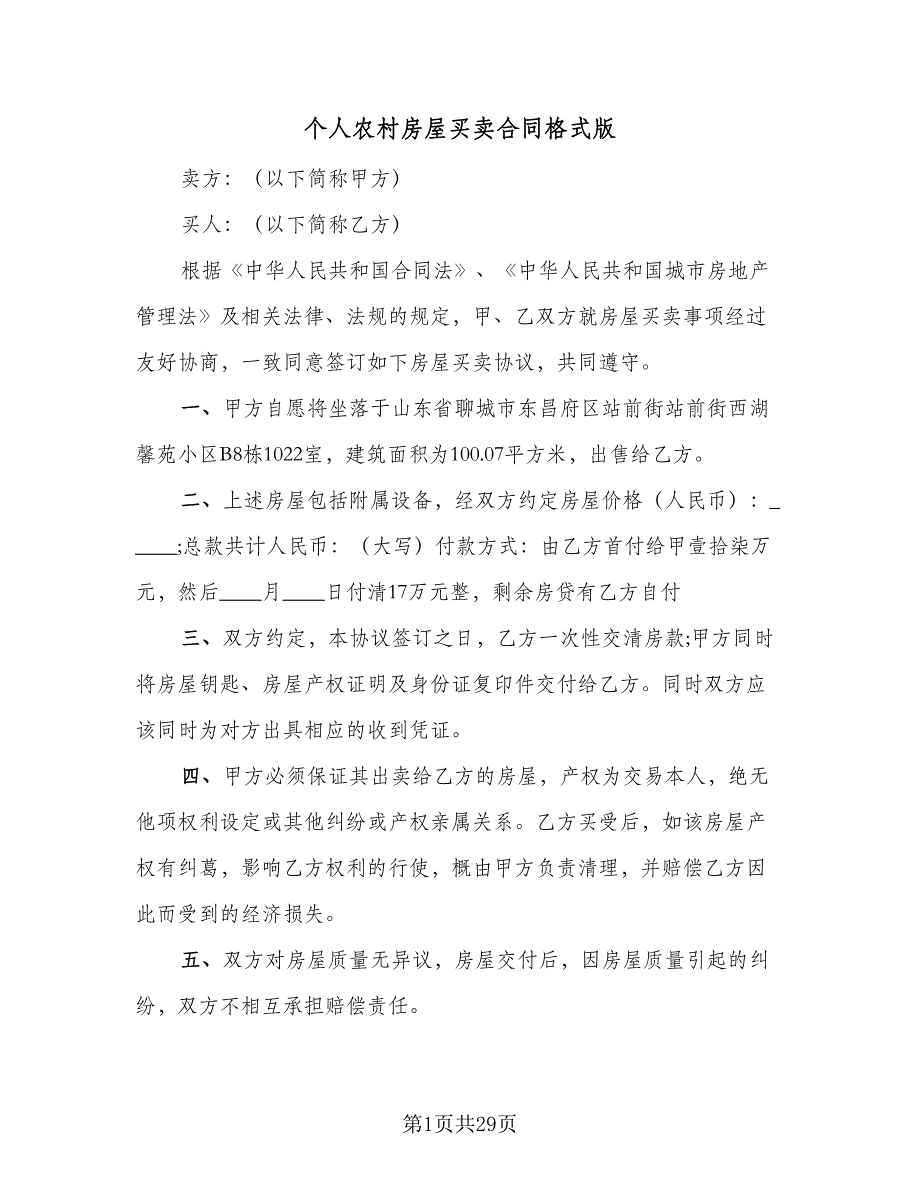 个人农村房屋买卖合同格式版
卖方：（以下简称甲方）
买人：（以下简称乙方）
根据《中华人民共和国合同法》、《中华人民共和国城市房地产
管理法》及相关法律、法规的规定，甲、乙双方就房屋买卖事项经过
友好协商，一致同意签订如下房屋买卖协议，共同遵守。
一、甲方自愿将坐落于山东省聊城市东昌府区站前街站前街西湖
馨苑小区B8栋1022室，建筑面积为100.07平方米，出售给乙方。
二、上述房屋包括附属设备，经双方约定房屋价格（人民币）：_
____;总款共计人民币：（大写）付款方式：由乙方首付给甲壹拾柒万
元，然后____月____日付清17万元整，剩余房贷有乙方自付
三、双方约定，本协议签订之日，乙方一次性交清房款;甲方同时
将房屋钥匙、房屋产权证明及身份证复印件交付给乙方。同时双方应
该同时为对方出具相应的收到凭证。
四、甲方必须保证其出卖给乙方的房屋，产权为交易本人，绝无
他项权利设定或其他纠纷或产权亲属关系。乙方买受后，如该房屋产
权有纠葛，影响乙方权利的行使，概由甲方负责清理，并赔偿乙方因
此而受到的经济损失。
五、双方对房屋质量无异议，房屋交付后，因房屋质量引起的纠
纷，双方不相互承担赔偿责任。
第1页共29页